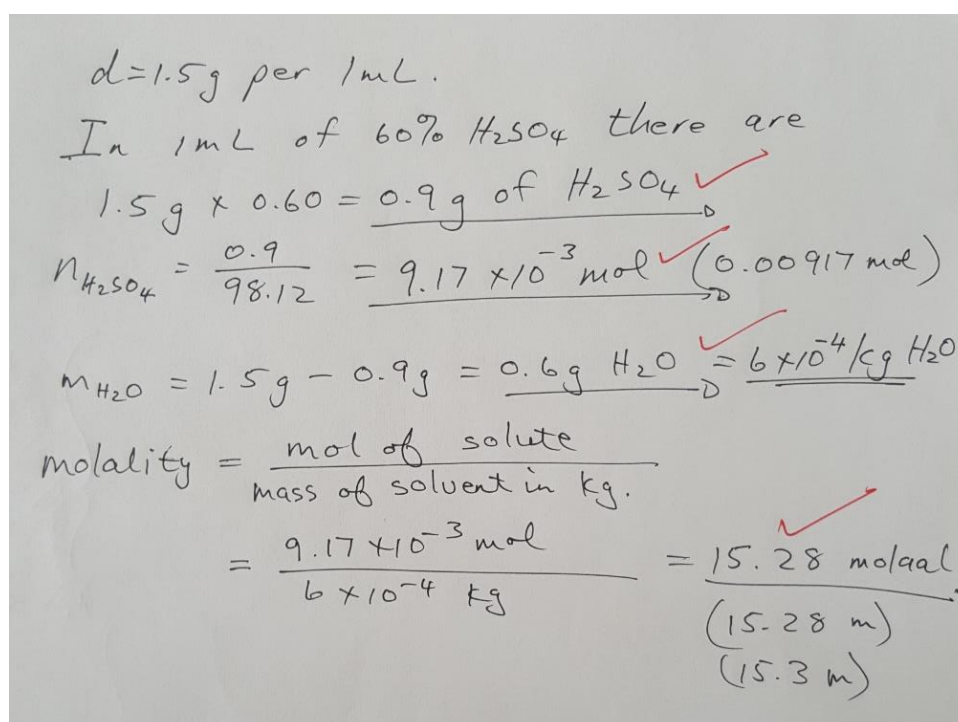 d=1.5g per 1mL.
In 1mL of 60% H₂SO₄ there are
1.5g × 0.60 = 0.9g of H₂SO₄ ✓
n H₂SO₄ = 0.9 / 98.12 = 9.17 × 10⁻³ mol ✓ (0.00917 mol)
m H₂O = 1.5g - 0.9g = 0.6g H₂O ✓ = 6×10⁻⁴/kg H₂O
molality = mol of solute / mass of solvent in kg.
= 9.17 × 10⁻³ mol / 6 × 10⁻⁴ kg = 15.28 molaal ✓
(15.28 m)
(15.3 m)